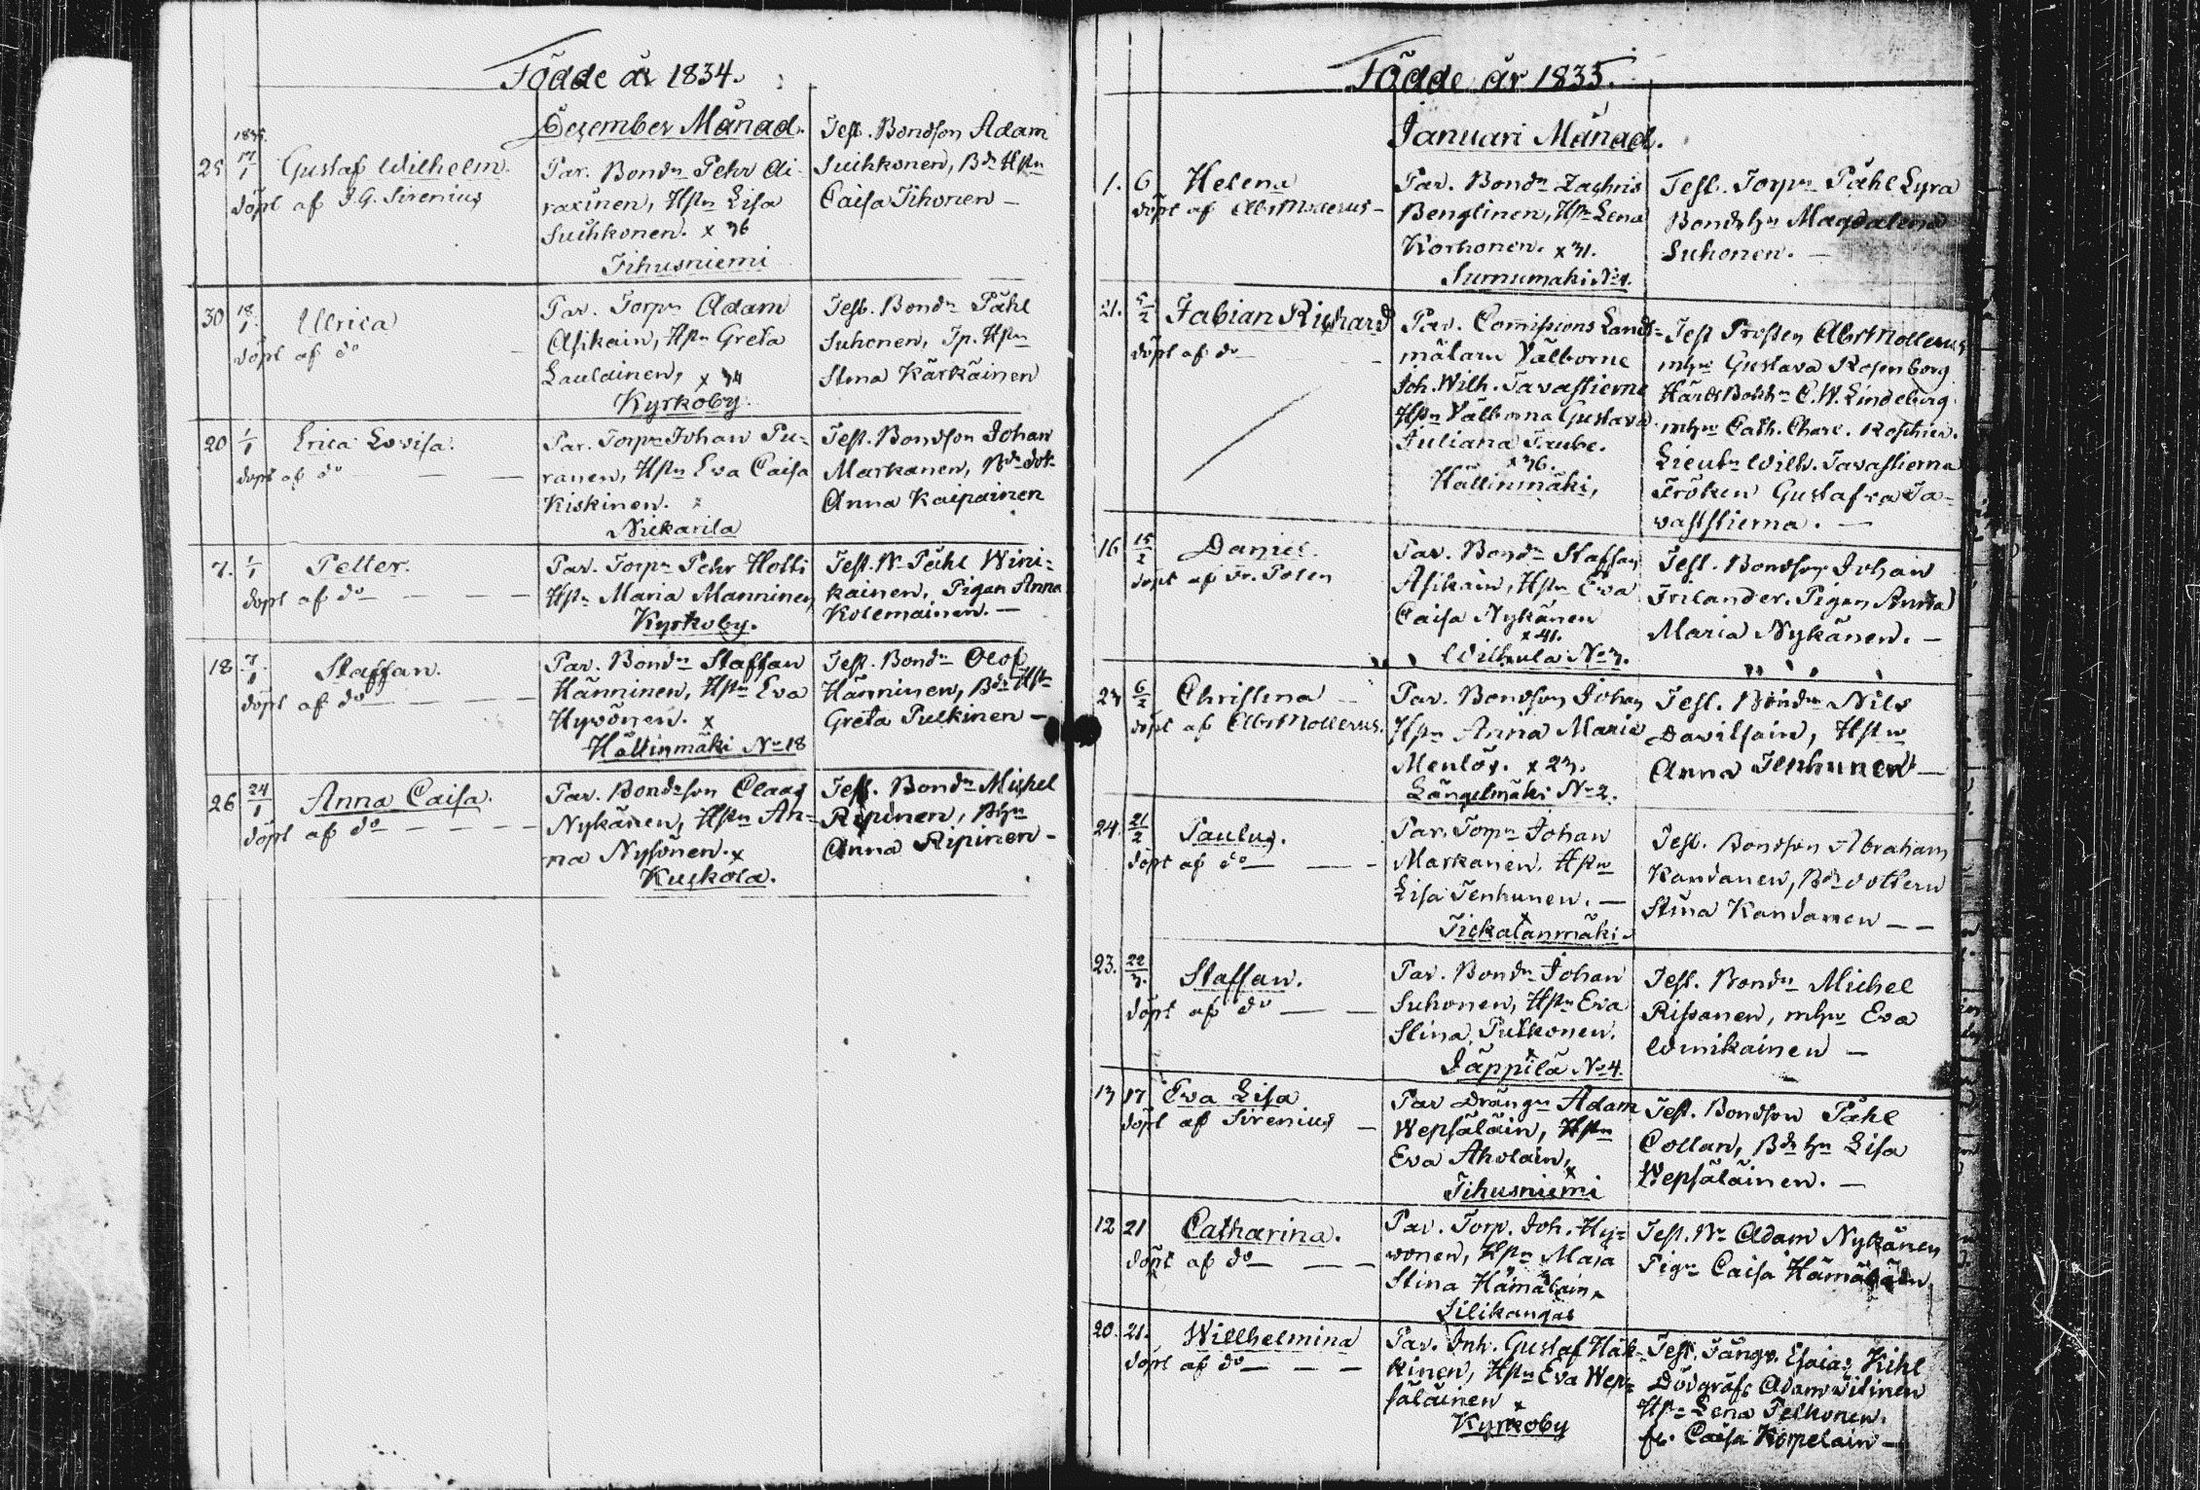 Födde år 1834.
December Månad.
25 17/1 Gustaf Wilhelm.
döpt af J.G. Sirenius
Par. Bondn Pehr Ai-
raxinen, Hstn Lisa
Suihkonen. x 36
Tihusniemi
Test. Bondson Adam
Suihkonen, Bde Hstn
Caisa Tihonen —
30 18/1 Ullrica
döpt af do —
Par. Torpn Adam
Asikain, Hstn Greta
Lauldinen, x 34
Kyrkoby.
Test. Bondn Påhl
Suhonen, Tp. Hstn
Stina Kärkäinen
20 1/1 Erica Lovisa.
döpt af do — —
Par. Torpn Johan Pu-
ranen, Hstn Eva Caisa
Kiskinen. x
Niekarila
Test. Bondson Johan
Markanen, Bde dot.
Anna Kaipainen
7. 1/1 Petter.
döpt af do — — — —
Par. Torpn Pehr Hotti
Hstn Maria Manninen
Kyrkoby.
Test. Påhl Wini-
kainen, Pigan Anna
Kolemainen. —
18 7/1 Staffan.
döpt af do — — — —
Par. Bondn Staffan
Hänninen, Hstn Eva
Hyvönen. x
Hällinmäki No 18
Test. Bondn Olof
Hänninen, Bde Hstn
Greta Pulkinen —
26 24/1 Anna Caisa.
döpt af do — — — —
Par. Bondeson Claas
Nykänen, Hstn An-
na Nysönen. x
Kuskola.
Test. Bondn Michel
Ripinen, Bhn
Anna Ripinen —
Födde år 1835.
Januari Månad.
1. 6 Helena
döpt af Abr Mollerus —
Par. Bondn Zachris
Bengtinen, Hstn Lena
Korhonen. x 31.
Surnumäki No 4.
Test. Torpn Påhl Lyra
Bondehn Magdalena
Suhonen. —
21. 5/2 Fabian Richard
döpt af do — —
Par. Comissions Landt-
mätarn Välborne
Joh. Wilh. Tavastsierne
Hstn Välborna Gustava
Juliana Taube.
x 36.
Hällinmäki,
Test Prosten Abr Mollerus
mhn Gustava Rosenborg
C.W. Lindeburg
mhn Cath. Charl.
Lieutn Wilh. Tavastierna
Fröken Gustafva Ta-
vaststierna. —
16 15/2 Daniel.
döpt af Fr. Polen
Par. Bondn Staffan
Asikain, Hstn Eva
Caisa Nykänen
x 41.
Wilhula No 3.
Test. Bondson Johan
Frilander. Pigan Anna
Maria Nykänen. —
23 6/2 Christina —
döpt af Abr Mollerus.
Par. Bondson Johan
Hstn Anna Maria
Menlös. x 23.
Längelmäki No 2.
Test. Bondn Nils
Davitsain, Hstn
Anna Tenhunen —
24. 21/2 Paulus.
döpt af do — — —
Par. Torpn Johan
Markanen, Hstn
Lisa Tenhunen. —
x
Tickalanmäki.
Test. Bondson Abraham
Kandanen, Bde dottern
Stina Kandanen — —
23. 22/3. Staffan.
döpt af do — —
Par. Bondn Johan
Suhonen, Hstn Eva
Stina Pulkonen.
x
Jäppilä No 4.
Test. Bondn Michel
Rissanen, mhn Eva
Winikainen —
13 17 Eva Lisa
döpt af Sirenius —
Par Drängn Adam
Wepsäläin, Hstn
Eva Aholain,
x
Tihusniemi
Test. Bondson Påhl
Collan, Bde hn Lisa
Wepsäläinen. —
12 21 Catharina.
döpt af do — — —
Par. Torp. Joh. Hy-
vonen, Hstn Maja
Stina Hämäläin, x
Lilikangas
Test. Adam Nykänen
Pign Caisa Hämäläin.
20. 21. Willhelmina
döpt af do — — —
Par. Inh. Gustaf Häk-
kinen, Hstn Eva Wep-
säläinen
x
Kyrkoby
Test. Fångv. Esaias Kihl
Dödgräfv Adam
Hstn Lena Pelkonen.
Caisa Kopelain —